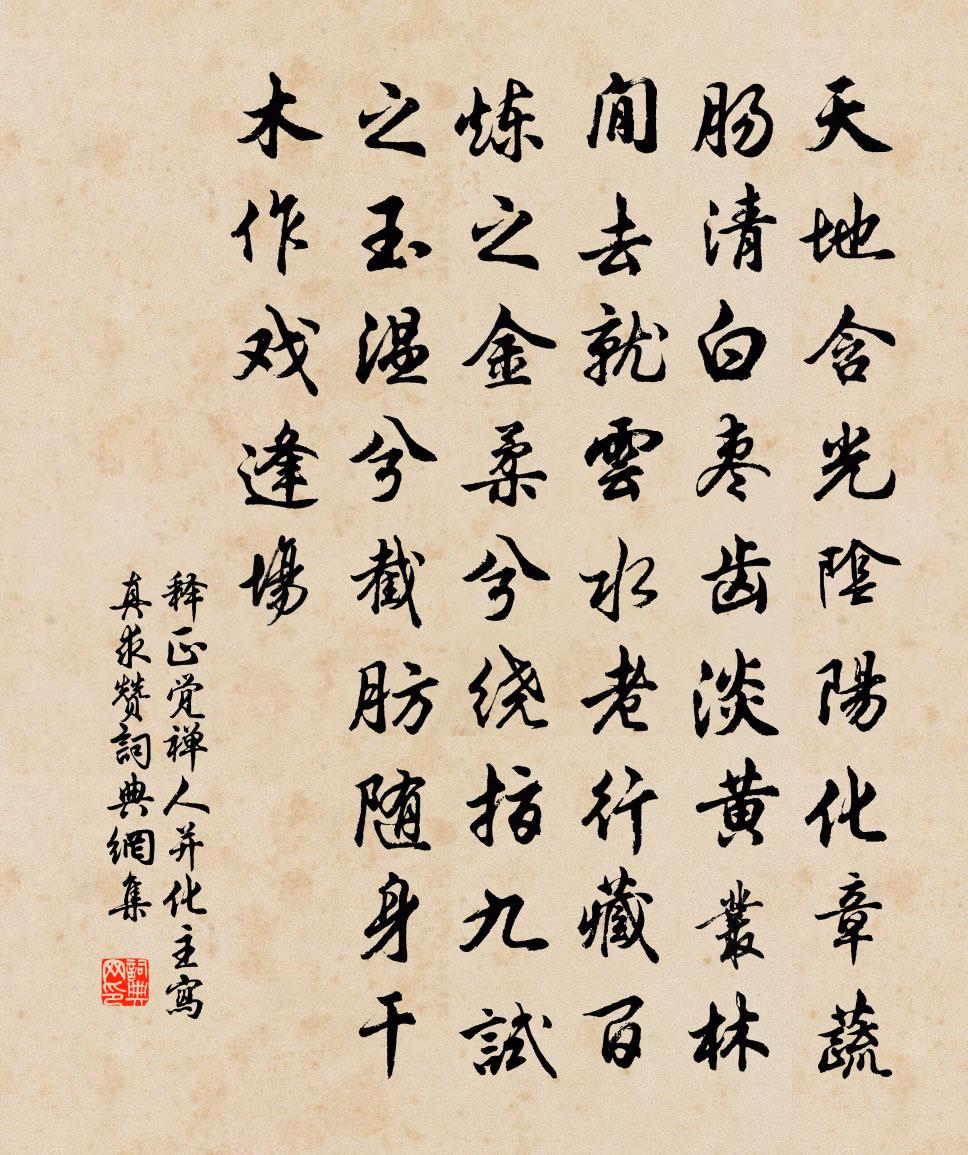 天地含光陰陽化章蔬
肠清白枣齿淡黄叢林
閒去就雲水老行藏百
炼之金柔兮绕指九試
之玉温兮截肪随身干
木作戏逢場
释正觉禅人并化主寫
真求赞詞典網集
詞典网印